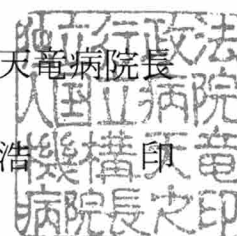 天竜病院長
浩 印
独立行政法
人国立病院
機構天竜
病院長之印